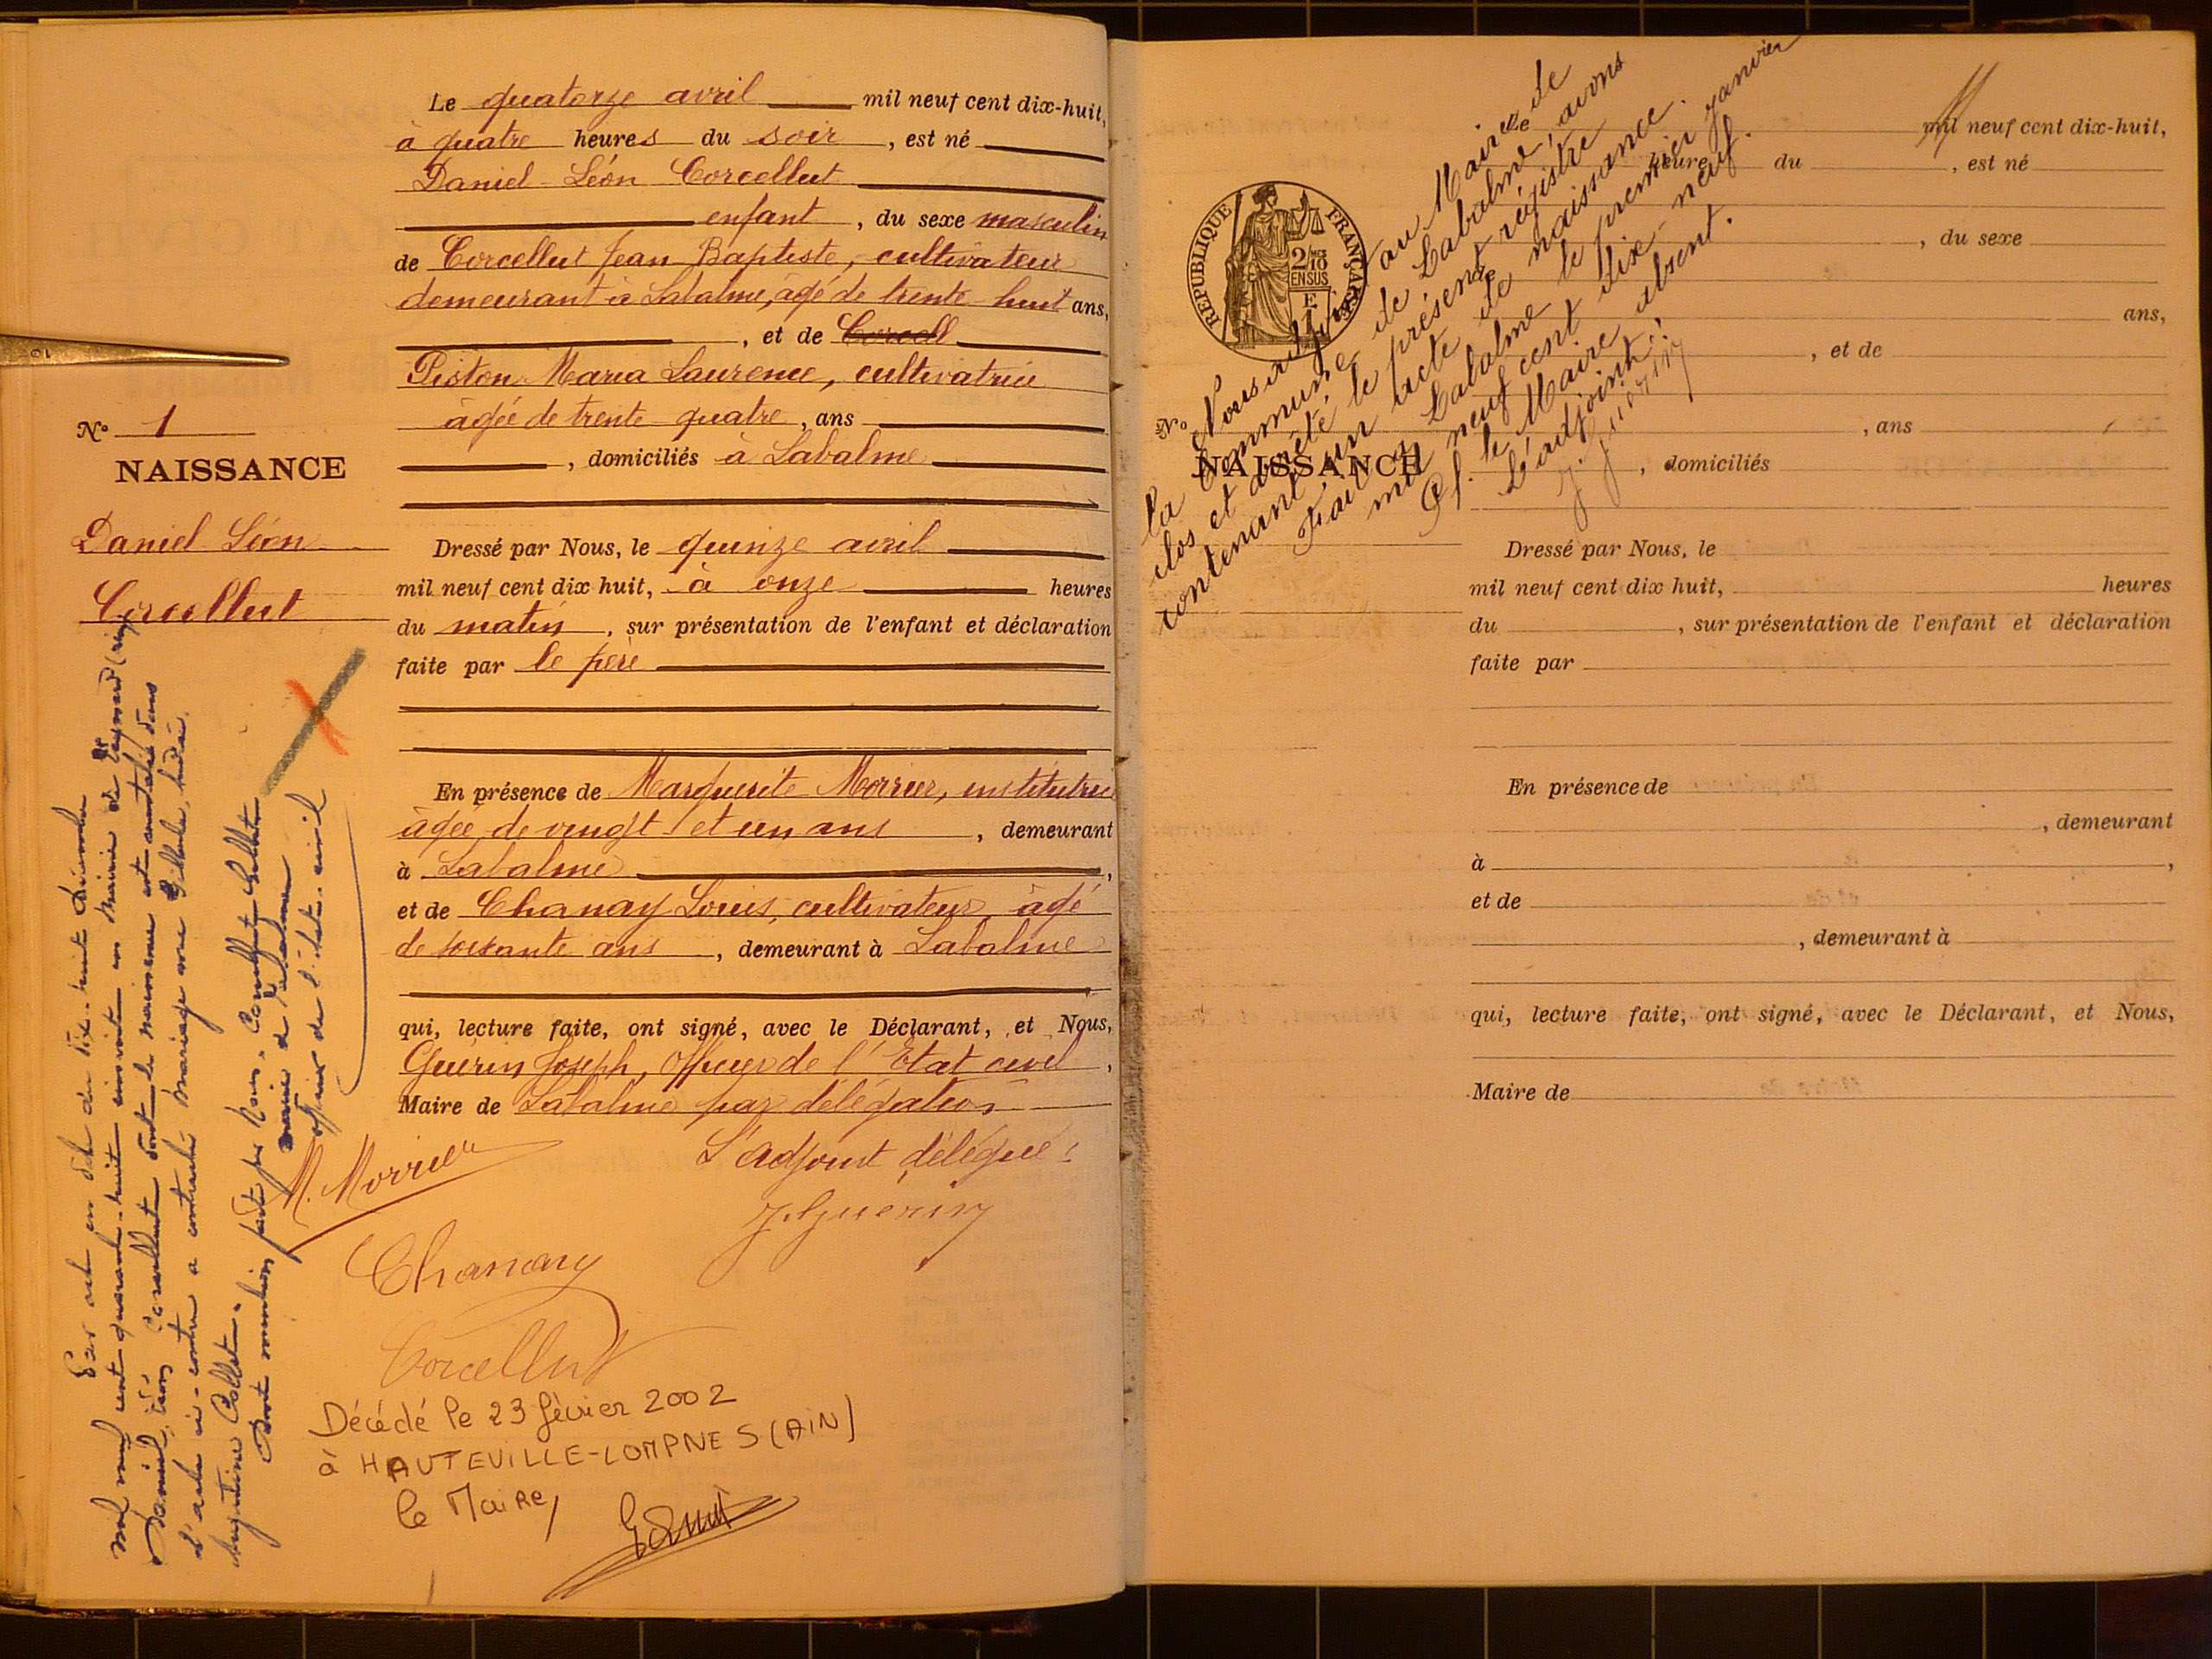 Le quatorze avril mil neuf cent dix-huit,
à quatre heures du soir, est né
Daniel-Léon Corcellut
enfant, du sexe masculin
de Corcellut Jean Baptiste, cultivateur
demeurant à Labalme, âgé de trente huit ans,
, et de Corcell
Piston Maria Laurence, cultivatrice
âgée de trente quatre, ans
, domiciliés à Labalme
No 1
NAISSANCE
Daniel Léon
Corcellut
Dressé par Nous, le quinze avril
mil neuf cent dix huit, à onze heures
du matin, sur présentation de l'enfant et déclaration
faite par le père
En présence de Marguerite Morrier, institutrice
âgée de vingt et un ans, demeurant
à Labalme,
et de Chanay Louis, cultivateur, âgé
de soixante ans, demeurant à Labalme
qui, lecture faite, ont signé, avec le Déclarant, et Nous,
Guérin Joseph, Officier de l'Etat civil,
Maire de Labalme par délégation
M. Morrier
L'adjoint délégué :
J. Guérin
Chanay
Corcellut
Décédé le 23 février 2002
à HAUTEVILLE-LOMPNES (AIN)
le Maire,
Par acte en date du dix-huit Décembre
mil neuf cent quarante-huit inscrit en Mairie de
Daniel, Léon Corcellut dont la naissance est constatée dans
l'acte ci-contre a contracté mariage avec
Augustine Collet.
Dont mention faite par Nous,
mairie de Labalme
officier de l'état-civil
REPUBLIQUE FRANÇAISE
2/10
EN SUS
Nous adjoint au Maire de
la Commune de Labalme, avons
clos et arrêté le présent registre
contenant un acte de naissance.
Fait à Labalme le premier janvier
mil neuf cent dix-neuf.
Pr. le Maire absent.
L'adjoint :
J. Guérin
Le mil neuf cent dix-huit,
heure du, est né
, du sexe
de
ans,
, et de
No
, ans
NAISSANCE
, domiciliés
Dressé par Nous, le
mil neuf cent dix huit, heures
du, sur présentation de l'enfant et déclaration
faite par
En présence de
, demeurant
à,
et de
, demeurant à
qui, lecture faite, ont signé, avec le Déclarant, et Nous,
Maire de